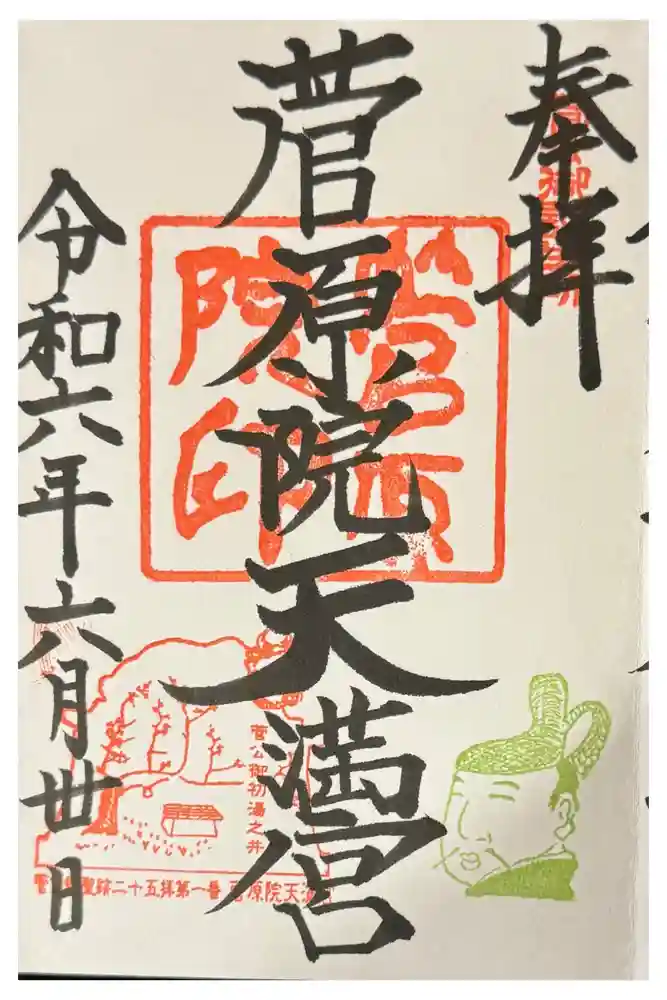 奉拝
菅原院天満宮
令和六年六月丗日
菅原
院印
菅公御初湯之井
聖跡二十五拝第一番 菅原院天満